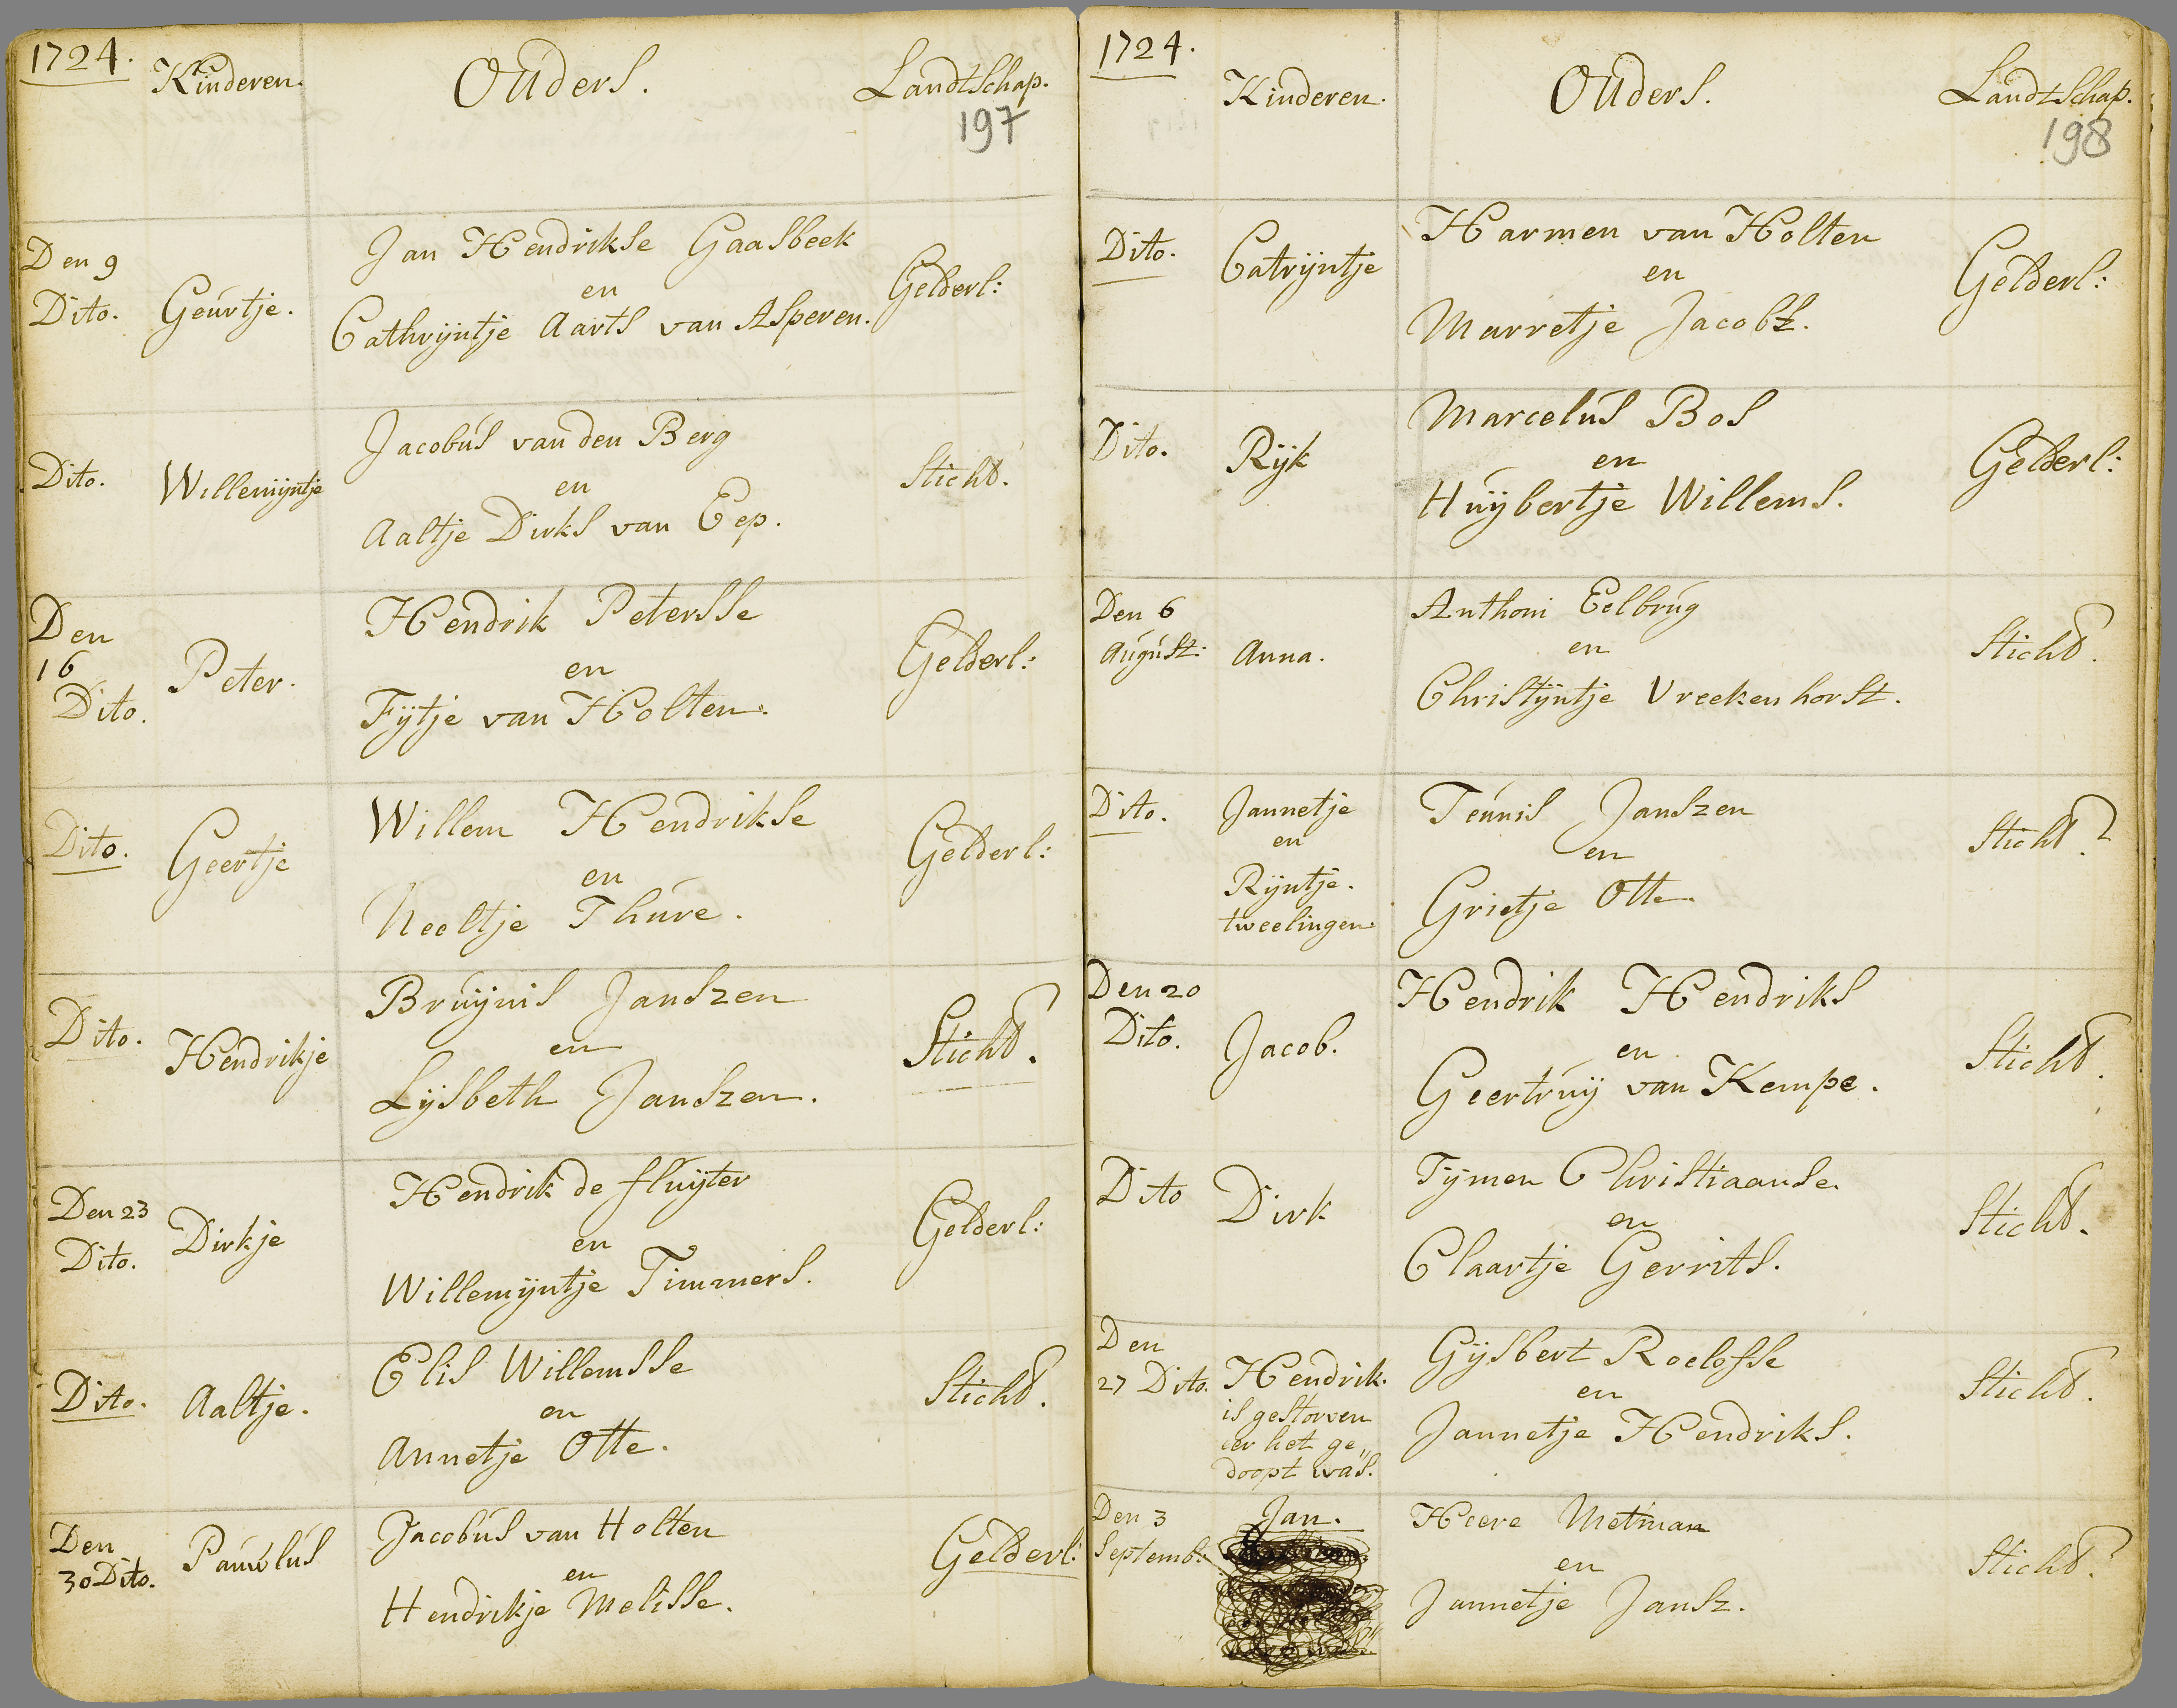 1724.
Kinderen.
Ouders.
Landtschap.
197
Den 9
Dito.
Geurtje.
Jan Hendrikse Gaasbeek
en
Cathrijntje Aarts van Asperen.
Gelderl:
Dito.
Willemijntje
Jacobus van den Berg
en
Aaltje Dirks van Eep.
Sticht.
Den
16
Dito.
Peter.
Hendrik Petersse
en
Fijtje van Holten.
Gelderl:
Dito.
Geertje
Willem Hendrikse
en
Neeltje Thure.
Gelderl:
Dito.
Hendrikje
Bruijnis Janszen
en
Lijsbeth Janszen.
Sticht.
Den 23
Dito.
Dirkje
Hendrik de fluijter
en
Willemijntje Timmers.
Gelderl:
Dito.
Aaltje.
Elis Willemsse
en
Annetje Otte.
Sticht.
Den
30 Dito.
Pauwlus
Jacobus van Holten
en
Hendrikje Melisse.
Gelderl:
1724.
Kinderen.
Ouders.
Landtschap.
198
Dito.
Catrijntje
Harmen van Holten
en
Marretje Jacobz.
Gelderl:
Dito.
Rijk
Marcelus Bos
en
Huijbertje Willems.
Gelderl:
Den 6
August:
Anna.
Anthoni Eelbrug
en
Christijntje Vreekenhorst.
Sticht.
Dito.
Jannetje
en
Rijntje.
tweelingen
Teunis Janszen
en
Grietje Otte.
Sticht.
Den 20
Dito.
Jacob.
Hendrik Hendriks
en
Geertruij van Kempe.
Sticht.
Dito
Dirk
Tijmen Christiaanse
en
Claartje Gerrits.
Sticht.
Den
27 Dito.
Hendrik.
is gestorven
eer het ge„
doopt was.
Gijsbert Roelofse
en
Jannetje Hendriks.
Sticht.
Den 3
Septemb:
Jan.
Heere Metman
en
Jannetje Jansz.
Sticht.